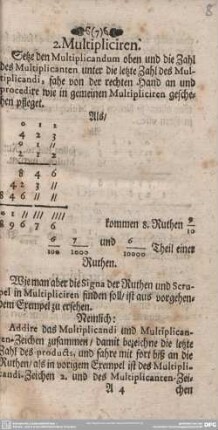 (7)
8
2. Multipliciren.
Setze den Multiplicandum oben und die Zahl
des Multiplicanten unter die letzte Zahl des Mul-
tiplicandi, fahe von der rechten Hand an und
procedire wie in gemeinen Multipliciren gesche-
hen pfleget.
Als/
0 1 2
4 2 3
0 1 //
2 1 2
8 4 6
4 2 3 //
8 4 6 //
0 1 // /// ////
8 9 6 7 6
kommen 8. Ruthen 9/10
6/100 7/1000 und 6/10000 Theil einer
Ruthen.
Wie man aber die Signa der Ruthen und Scru-
pel in Multipliciren finden soll/ ist aus vorgehen-
dem Exempel zu ersehen.
Nemlich:
Addire das Multiplicandi und Multiplican-
ten-Zeichen zusammen/ damit bezeichne die letzte
Zahl des products, und fahre mit fort biß an die
Ruthen/ als in vorigem Exempel ist des Multipli-
candi-Zeichen 2. und des Multiplicanten-Zei-
A 4
chen